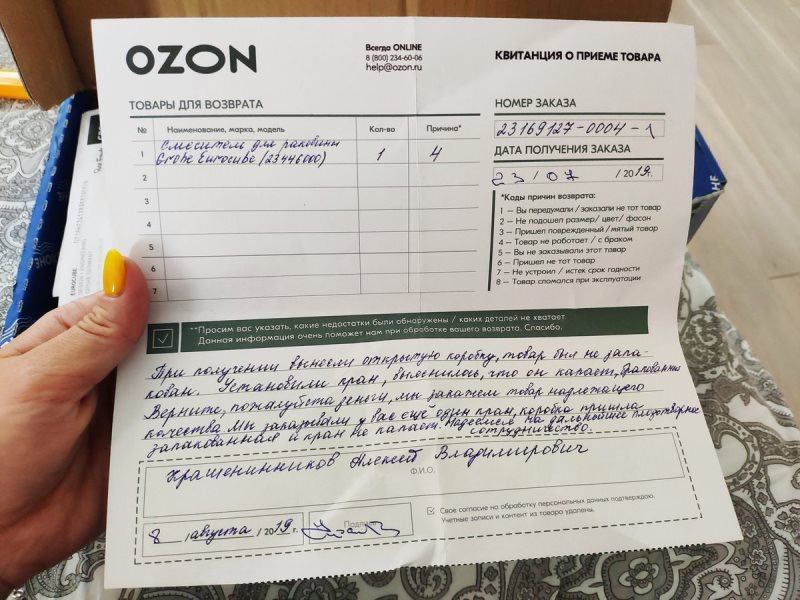 OZON
Всегда ONLINE
8 (800) 234-60-06
help@ozon.ru
КВИТАНЦИЯ О ПРИЕМЕ ТОВАРА
ТОВАРЫ ДЛЯ ВОЗВРАТА
№ Наименование, марка, модель Кол-во Причина*
1 Смеситель для раковины
Grohe Eurocube (23446000) 1 4
2
3
4
5
6
7
НОМЕР ЗАКАЗА
23169127-0004-1
ДАТА ПОЛУЧЕНИЯ ЗАКАЗА
23 / 07 / 2019г.
*Коды причин возврата:
1 — Вы передумали / заказали не тот товар
2 — Не подошел размер/ цвет/ фасон
3 — Пришел поврежденный /мятый товар
4 — Товар не работает / с браком
5 — Вы не заказывали этот товар
6 — Пришел не тот товар
7 — Не устроил / истек срок годности
8 — Товар сломался при эксплуатации
**Просим вас указать, какие недостатки были обнаружены / каких деталей не хватает.
Данная информация очень поможет нам при обработке вашего возврата. Спасибо.
При получении вынесли открытую коробку, товар был не запа-
кован. Установили кран, выяснилось, что он капает, бракованный
Верните, пожалуйста деньги, мы закажем товар надлежащего
качества. Мы заказывали у вас ещё один кран, коробка пришла
запакованная и кран не капает. Надеемся на дальнейшее плодотворное
сотрудничество.
Крашенинников Алексей Владимирович
Ф.И.О.
8 /августа /2019г.
Подпись
Свое согласие на обработку персональных данных подтверждаю.
Учетные записи и контент из товара удалены.